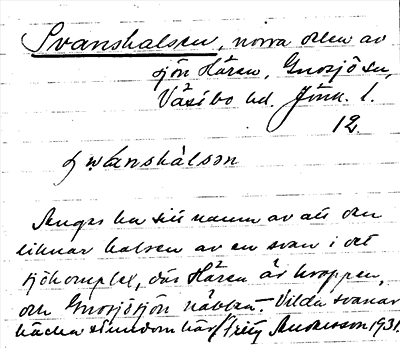 Svanshalsen, norra delen av
sjön Hären, Gnosjö sn,
Västbo hd. Jönk. l.
12.
swánshàlsən
Anges ha sitt namn av att den
liknar halsen av en svan i det
sjökomplex, där Hären är kroppen,
och Gnosjösjön näbben. Vilda svanar
häcka stundom här / Andersson 1931.